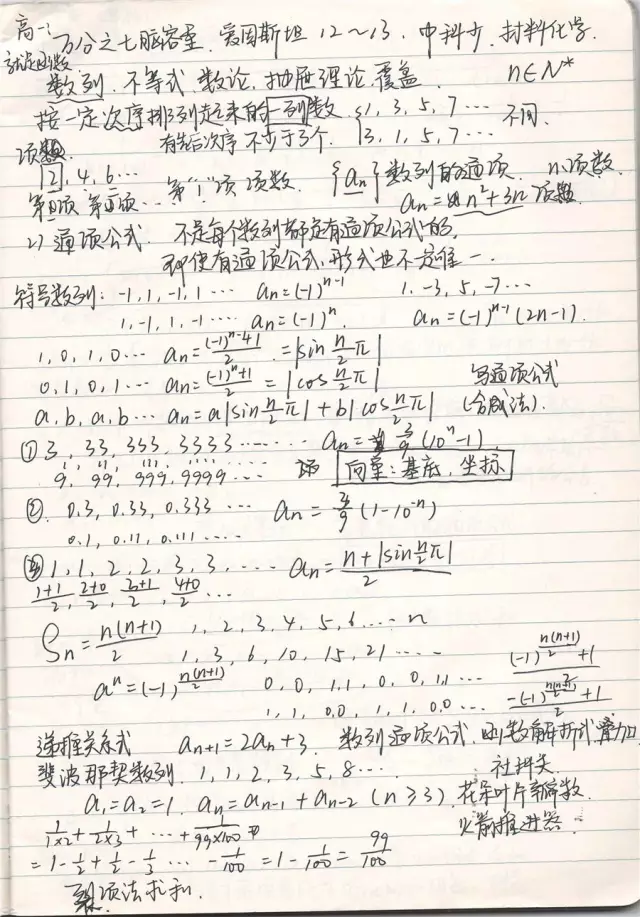 高一
万分之七脑容量 爱因斯坦 12~13. 中科大. 材料化学.
就是函数
数列. 不等式 数论, 抽屉理论, 覆盖. n∈N*
按一定次序排列起来的一列数 {1, 3, 5, 7 … 不同.
有先后次序 不少于3个. 3, 1, 5, 7 …
项
2, 4, 6 … 第"1"项 项数. {an} 数列的通项. n:项数.
第 项 第 项 … an = n²+3n 项数
2) 通项公式. 不是每个数列都定有通项公式的,
即使有通项公式, 形式也不一定唯一.
符号数列: -1, 1, -1, 1 … an=(-1)^{n-1} 1, -3, 5, -7 …
1, -1, 1, -1 … an=(-1)^n. an=(-1)^{n-1}(2n-1).
1, 0, 1, 0 … an=\frac{(-1)^{n-1}+1}{2} =|sin \frac{n}{2}π|
0, 1, 0, 1 … an=\frac{(-1)^n+1}{2} =|cos \frac{n}{2}π| 写通项公式
a, b, a, b … an=a|sin \frac{n}{2}π|+b|cos \frac{n}{2}π| (合成法).
① 3, 33, 333, 3333 …… an=\frac{3}{9}(10^n-1)
9, 99, 999, 9999 … 向量:基底, 坐标
②. 0.3, 0.33, 0.333 … an=\frac{3}{9}(1-10^{-n})
0.1, 0.11, 0.111 ……
③ 1, 1, 2, 2, 3, 3, … an=\frac{n+|sin \frac{n}{2}π|}{2}
\frac{1+1}{2}, \frac{2+0}{2}, \frac{3+1}{2}, \frac{4+0}{2} …
Sn=\frac{n(n+1)}{2} 1, 2, 3, 4, 5, 6 … n
1, 3, 6, 10, 15, 21 …… \frac{(-1)^{\frac{n(n+1)}{2}}+1}{2}
a^n=(-1)^{\frac{n(n+1)}{2}} 0, 0, 1, 1, 0, 0, 1, 1 …
1, 1, 0, 0, 1, 1, 0, 0 …
递推关系式 an+1=2an+3. 数列通项公式. 函数解析式 叠加
斐波那契数列. 1, 1, 2, 3, 5, 8 …
a1=a2=1. an=an-1+an-2 (n≥3). 花朵叶片瓣数.
\frac{1}{1×2}+\frac{1}{2×3}+…+\frac{1}{99×100} 火箭推进器.
=1-\frac{1}{2}+\frac{1}{2}-\frac{1}{3} … -\frac{1}{100}=1-\frac{1}{100}=\frac{99}{100}
裂项法求和.